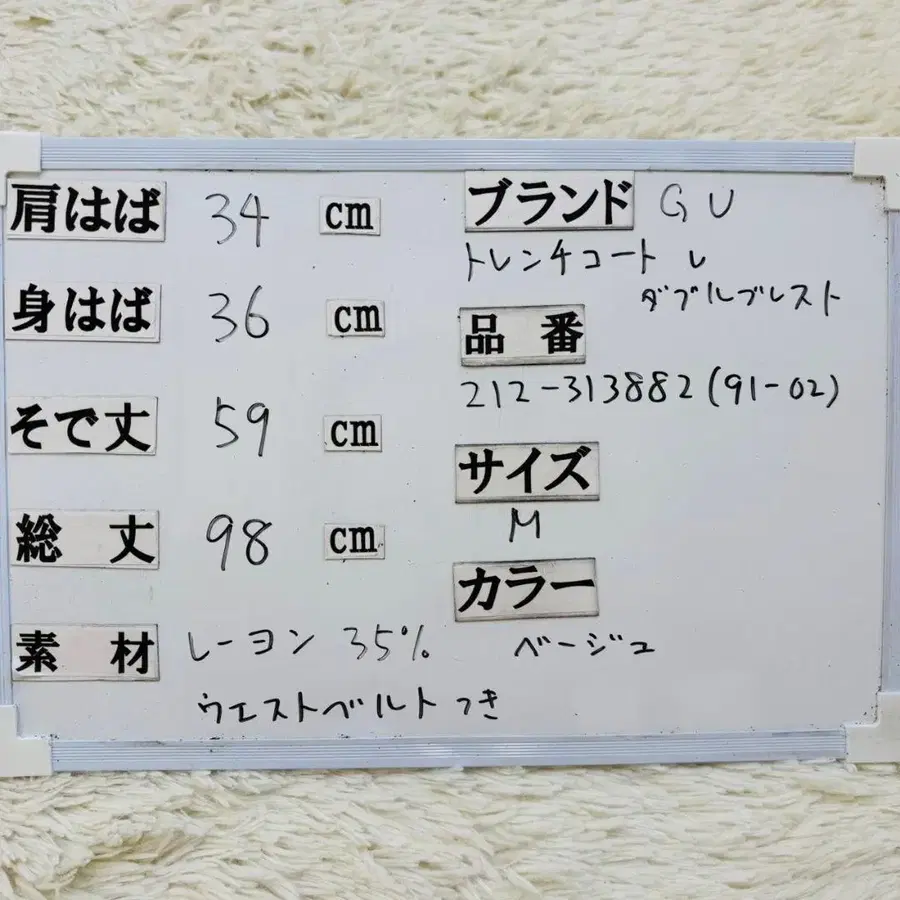 肩はば 34 cm
身はば 36 cm
そで丈 59 cm
総丈 98 cm
素材 レーヨン 35%
ウエストベルトつき
ブランド GU
トレンチコート レ
ダブルブレスト
品番
212-313882(91-02)
サイズ
M
カラー
ベージュ